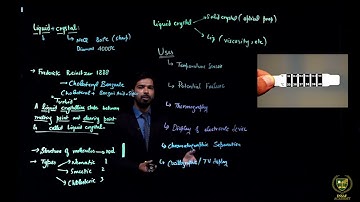 Liquid + crystal:
NaCl 801°C (sharp)
Diamond 4000°C
→ Frederick Reinitzer 1888
→ Cholesteryl Benzoate
Cholesterol + Benzoic Acid
"Turbid"
A liquid crystalline state between
melting point and clearing point
is called liquid crystal.
→ Structure of molecules → rod
→ Types → Nematic 1
→ Smectic 2
→ Cholesteric 3
Liquid crystal → Solid crystal (optical prop)
→ Liq (viscosity, etc)
Uses
→ Temperature Sensor
→ Potential Failure
→ Thermography
→ Display of electronic device
→ Chromatographic Separation
→ Oscillographic / TV display